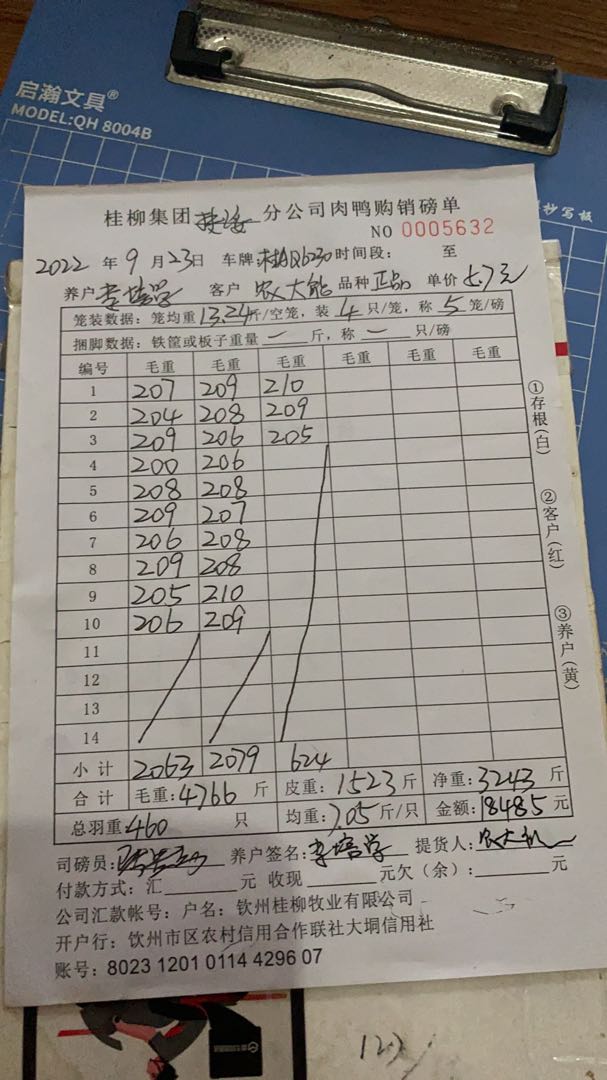 启瀚文具®
MODEL:QH 8004B
抄写板
桂柳集团 分公司肉鸭购销磅单
NO 0005632
2022年9月23日 车牌:桂AQ6230 时间段: 至
养户 李培学 客户 农大能 品种 正品 单价 5.7元
笼装数据:笼均重13.24斤/空笼,装4只/笼,称5笼/磅
捆脚数据:铁筐或板子重量一斤,称一只/磅
编号 毛重 毛重 毛重 毛重 毛重 毛重
1 207 209 210
2 204 208 209
3 209 206 205
4 200 206
5 208 208
6 209 207
7 206 208
8 209 208
9 205 210
10 206 209
11
12
13
14
小计 2063 2079 624
合计 毛重:4766斤 皮重:1523斤 净重:3243斤
总羽重460只 均重:7.05斤/只 金额:18485元
司磅员: 养户签名:李培学 提货人:
付款方式:汇 元 收现 元欠(余): 元
公司汇款帐号:户名:钦州桂柳牧业有限公司
开户行:钦州市区农村信用合作联社大垌信用社
账号:8023 1201 0114 4296 07
①存根(白)
②客户(红)
③养户(黄)